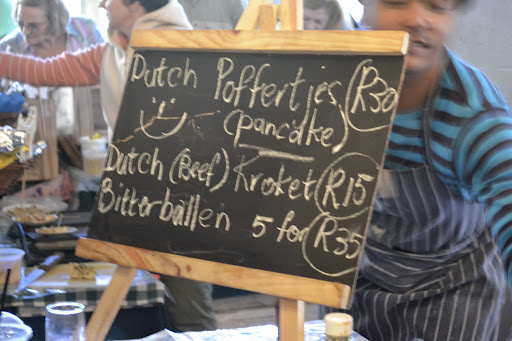 Dutch Poffertjes R30
(pancake)
Dutch (Beef) Kroket R15
Bitterballen 5 for R35